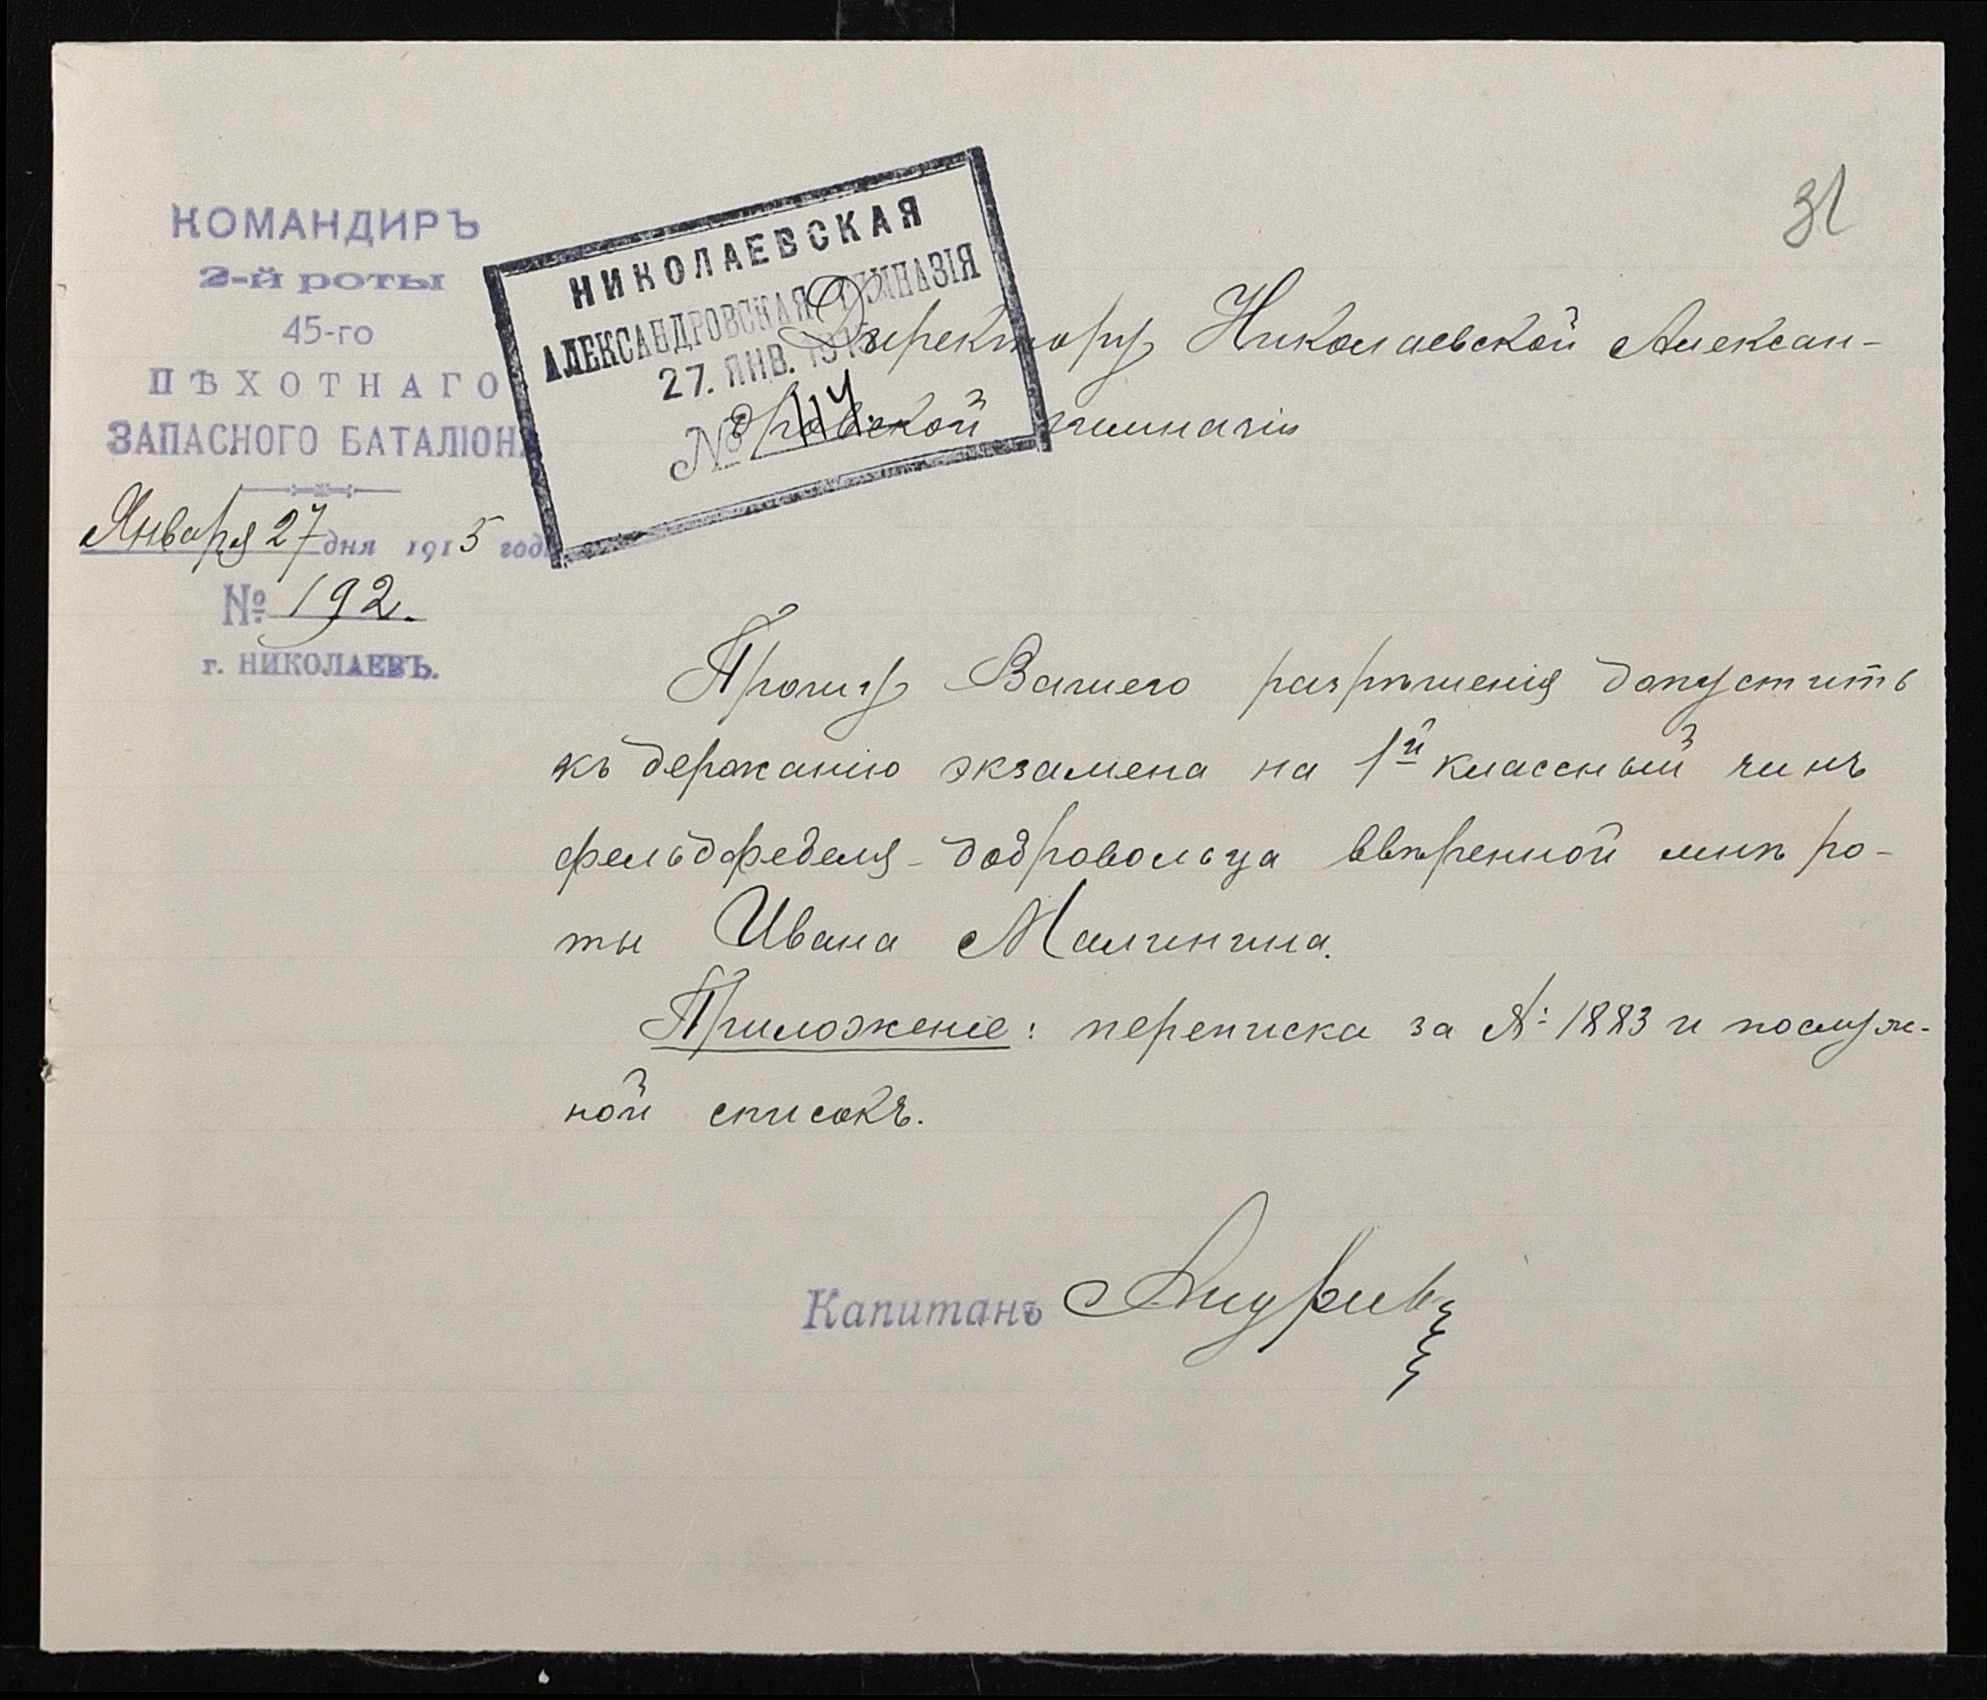 31
КОМАНДИРЪ
2-й роты
45-го
ПѢХОТНАГО
ЗАПАСНОГО БАТАЛІОНА
Января 27 дня 1915 года
№ 192.
г. НИКОЛАЕВЪ.
НИКОЛАЕВСКАЯ
АЛЕКСАНДРОВСКАЯ ГИМНАЗІЯ
27. ЯНВ. 1915
№ 114.
Директору Николаевской Алексан-
дровской гимназіи
Прошу Вашего разрѣшенія допустить
къ держанію экзамена на 1й классный чинъ
фельдфебеля-добровольца ввѣренной мнѣ ро-
ты Ивана Малинина.
Приложеніе: переписка за № 1883 и послуж-
ной списокъ.
Капитанъ